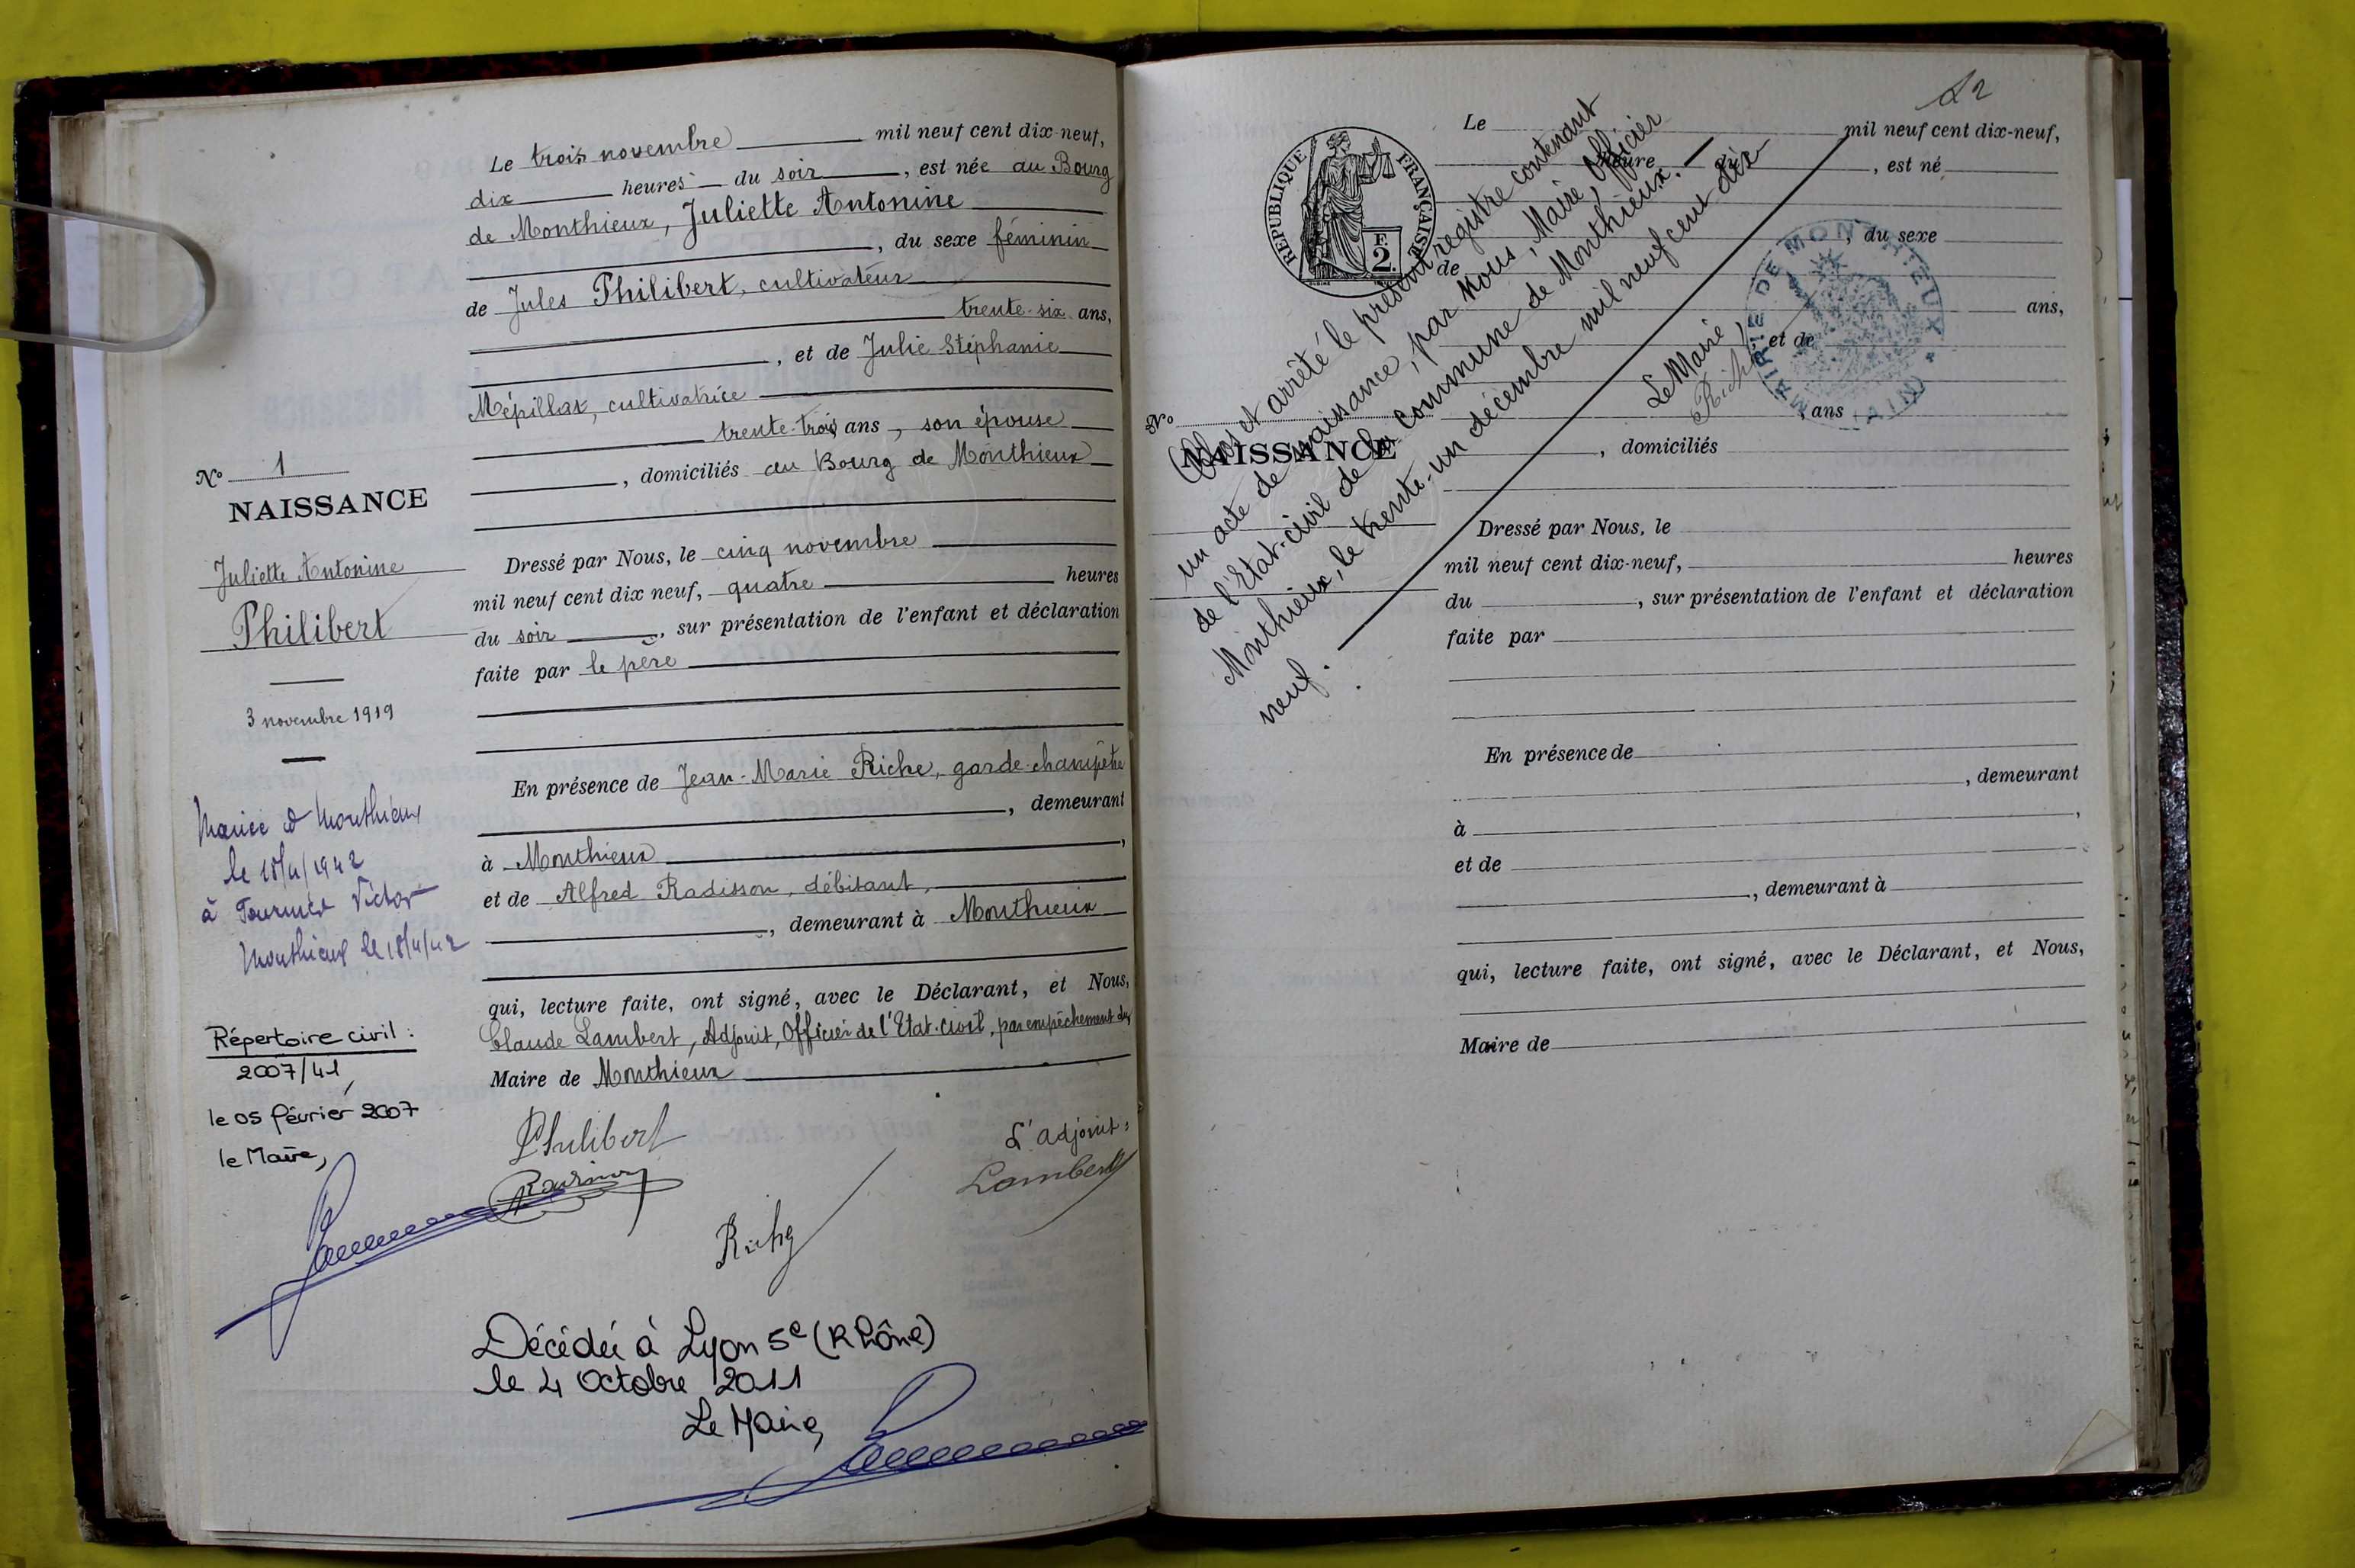 Le trois novembre mil neuf cent dix-neuf,
dix heures du soir, est née au Bourg
de Monthieux, Juliette Antonine
, du sexe féminin
de Jules Philibert, cultivateur
trente-six ans,
, et de Julie Stéphanie
Mépillat, cultivatrice
trente-trois ans, son épouse
, domiciliés au Bourg de Monthieux
N° 1
NAISSANCE
Juliette Antonine
Philibert
3 novembre 1919
Dressé par Nous, le cinq novembre
mil neuf cent dix neuf, quatre heures
du soir, sur présentation de l'enfant et déclaration
faite par le père
En présence de Jean-Marie Riche, garde-champêtre
, demeurant
à Monthieux,
et de Alfred Radisson, débitant,
, demeurant à Monthieux
qui, lecture faite, ont signé, avec le Déclarant, et Nous,
Claude Lambert, Adjoint, Officier de l'Etat-civil, par empêchement du
Maire de Monthieux
Mariée à Monthieux
le 18/4/1942
à Victor
Monthieux le 18/4/42
Répertoire civil :
2007/41
le 05 février 2007
le Maire,
Philibert
L'adjoint :
Lambert
Riche
Décédée à Lyon 5e (Rhône)
le 4 Octobre 2011
Le Maire,
12
Le mil neuf cent dix-neuf,
heure du , est né
, du sexe
de
ans,
, et de
, ans
N°
NAISSANCE
, domiciliés
REPUBLIQUE FRANÇAISE
2
F
Clos et arrêté le présent registre contenant
un acte de naissance, par Nous, Maire, Officier
de l'Etat-civil de la commune de Monthieux.
Monthieux, le trente-un décembre mil neuf cent dix
neuf.
Le Maire,
Riche
MAIRIE DE MONTHIEUX (AIN)
Dressé par Nous, le
mil neuf cent dix-neuf, heures
du , sur présentation de l'enfant et déclaration
faite par
En présence de
, demeurant
à ,
et de
, demeurant à
qui, lecture faite, ont signé, avec le Déclarant, et Nous,
Maire de